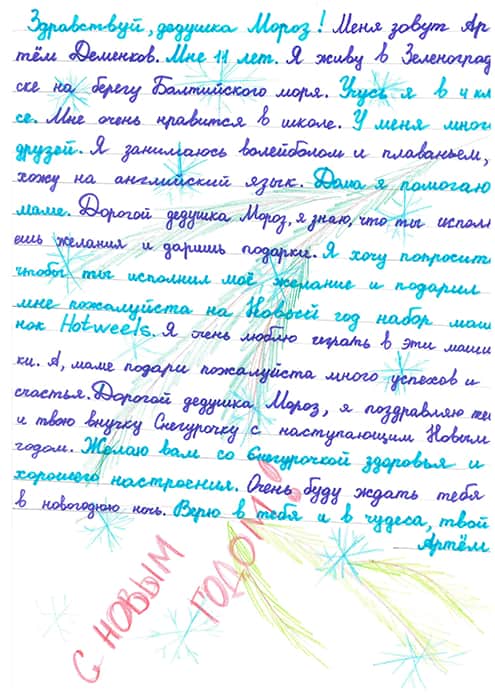 Здравствуй, дедушка Мороз! Меня зовут Ар
тём Деменков. Мне 11 лет. Я живу в Зеленоград
ске на берегу Балтийского моря. Учусь я в 4 кл
се. Мне очень нравится в школе. У меня мног
друзей. Я занимаюсь волейболом и плаваньем,
хожу на английский язык. Дома я помогаю
маме. Дорогой дедушка Мороз, я знаю, что ты испол
ешь желания и даришь подарки. Я хочу попросит
чтобы ты исполнил моё желание и подарил
мне пожалуйста на Новый год набор маш
нок Hotweels. Я очень люблю играть в эти маши
ки. А, маме подари пожалуйста много успехов и
счастья. Дорогой дедушка Мороз, я поздравляю те
и твою внучку Снегурочку с наступающим Новым
годом. Желаю вам со Снегурочкой здоровья и
хорошего настроения. Очень буду ждать тебя
в новогоднюю ночь. Верю в тебя и в чудеса, твой
Артём
С НОВЫМ
ГОДОМ!